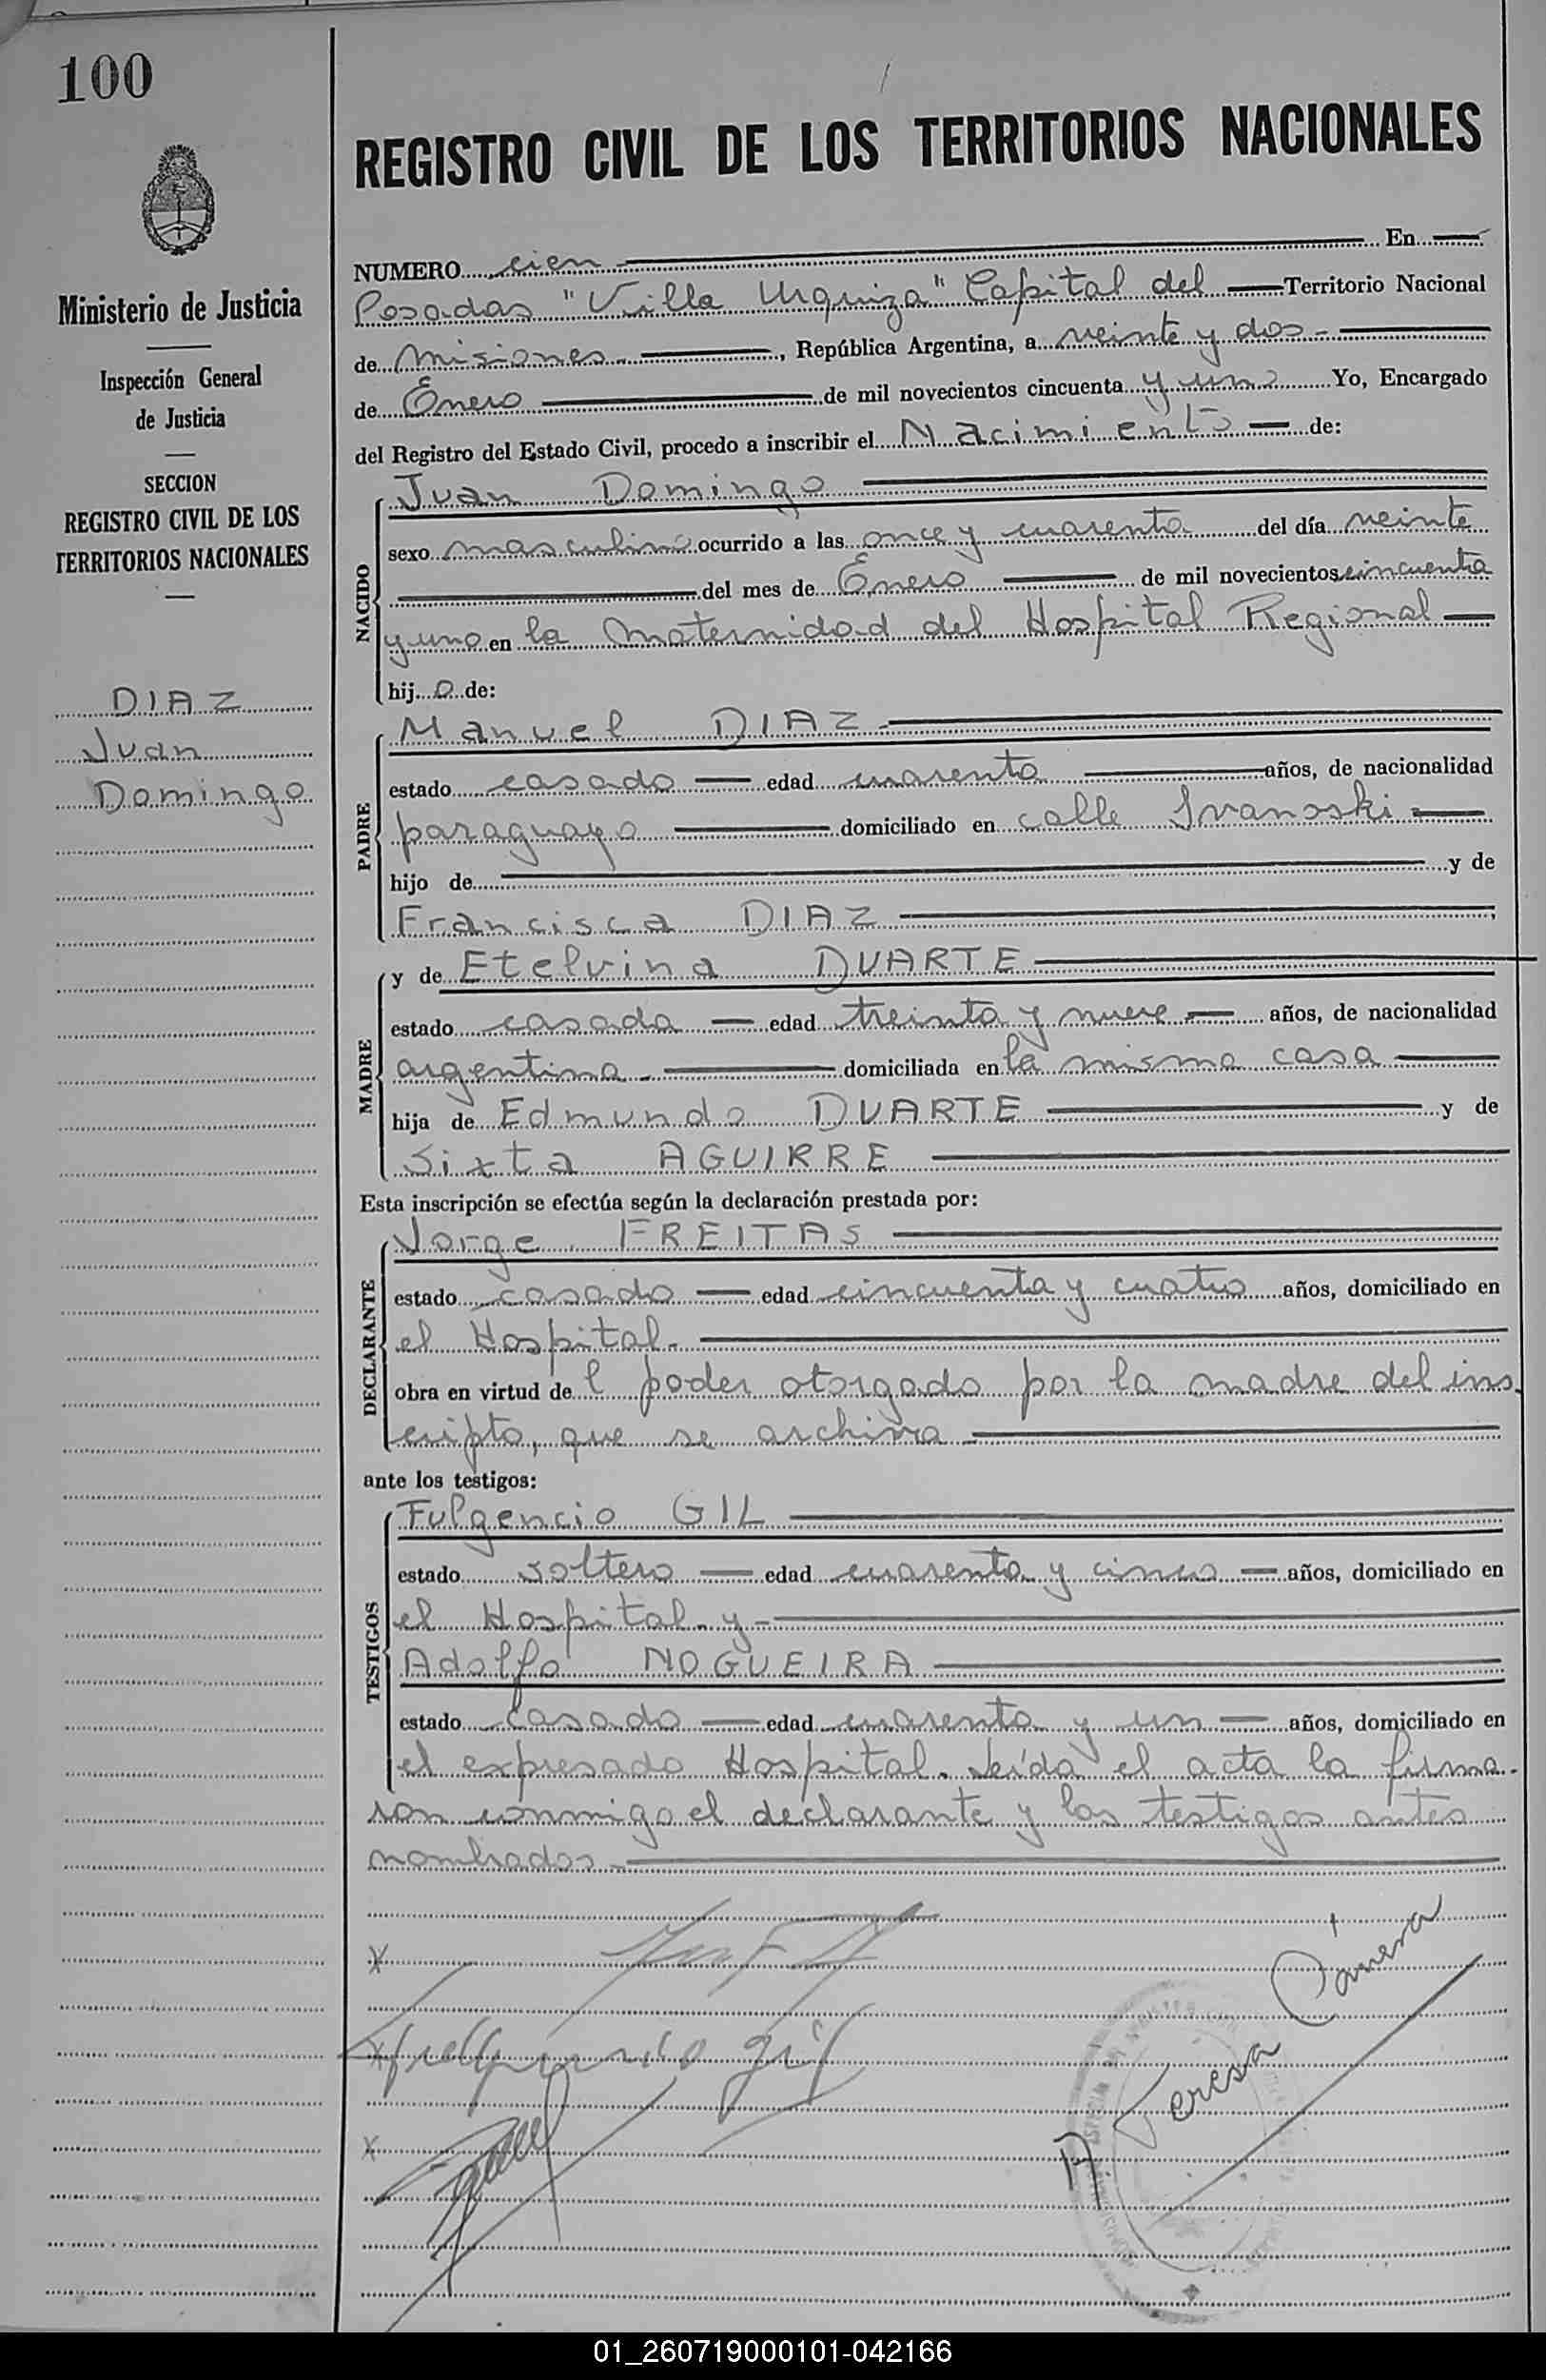 100
Ministerio de Justicia
Inspección General
de Justicia
SECCION
REGISTRO CIVIL DE LOS
TERRITORIOS NACIONALES
DIAZ
Juan
Domingo
REGISTRO CIVIL DE LOS TERRITORIOS NACIONALES
NUMERO cien En
Posadas "Villa Urquiza" Capital del Territorio Nacional
de Misiones, República Argentina, a veinte y dos
de Enero de mil novecientos cincuenta y uno Yo, Encargado
del Registro del Estado Civil, procedo a inscribir el Nacimiento de:
NACIDO
Juan Domingo
sexo masculino ocurrido a las once y cuarenta del día veinte
del mes de Enero de mil novecientos cincuenta
y uno en la Maternidad del Hospital Regional
hijo de:
PADRE
Manuel DIAZ
estado casado edad cuarenta años, de nacionalidad
paraguayo domiciliado en calle Ivanoski
hijo de y de
Francisca DIAZ
MADRE
y de Etelvina DUARTE
estado casada edad treinta y nueve años, de nacionalidad
argentina domiciliada en la misma casa
hija de Edmundo DUARTE y de
Sixta AGUIRRE
Esta inscripción se efectúa según la declaración prestada por:
DECLARANTE
Jorge FREITAS
estado casado edad cincuenta y cuatro años, domiciliado en
el Hospital.
obra en virtud del poder otorgado por la madre del ins
cripto, que se archiva
ante los testigos:
TESTIGOS
Fulgencio GIL
estado soltero edad cuarenta y cinco años, domiciliado en
el Hospital. y
Adolfo NOGUEIRA
estado casado edad cuarenta y un años, domiciliado en
el expresado Hospital. Leída el acta la firma-
ron conmigo el declarante y los testigos antes
nombrados
fullgencio gil
A. Teresa Cánera
01_260719000101-042166